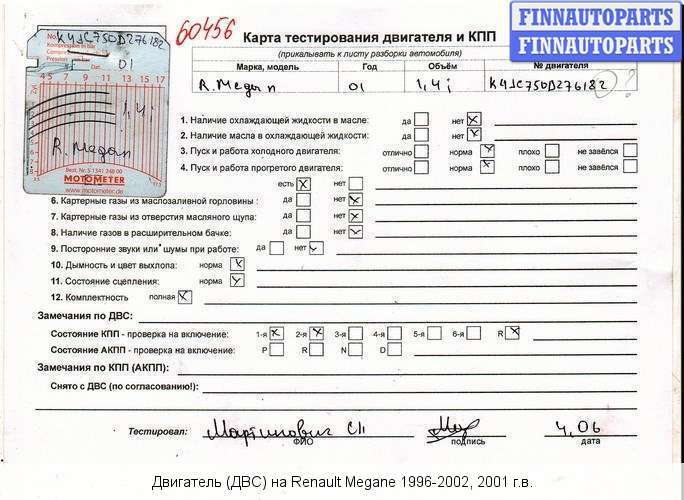 60456
FINNAUTOPARTS
FINNAUTOPARTS
FINNAUTOPARTS
No. K4JC750D276182
Kompression in bar
01
4 5 7 9 11 13 15 17
1,4i
R. Megan
Best. Nr. S 1341 248 00
MOTOMETER
www.motometer.de
Карта тестирования двигателя и КПП
(прикалывать к листу разборки автомобиля)
Марка, модель Год Объём № двигателя
R. Megan 01 1,4i K4JC750D276182 ?
1. Наличие охлаждающей жидкости в масле: да нет x
2. Наличие масла в охлаждающей жидкости: да нет x
3. Пуск и работа холодного двигателя: отлично норма x плохо не завёлся
4. Пуск и работа прогретого двигателя: отлично норма x плохо не завёлся
есть x нет
6. Картерные газы из маслозаливной горловины : да нет x
7. Картерные газы из отверстия масляного щупа: да нет x
8. Наличие газов в расширительном бачке: да нет x
9. Посторонние звуки или шумы при работе: да нет
10. Дымность и цвет выхлопа: норма x
11. Состояние сцепления: норма x
12. Комплектность полная x
Замечания по ДВС:
Состояние КПП - проверка на включение: 1-я x 2-я x 3-я 4-я 5-я 6-я R x
Состояние АКПП - проверка на включение: P R N D
Замечания по КПП (АКПП):
Снято с ДВС (по согласованию!):
Тестировал: Мартинович СП 4.06
ФИО подпись дата
Двигатель (ДВС) на Renault Megane 1996-2002, 2001 г.в.